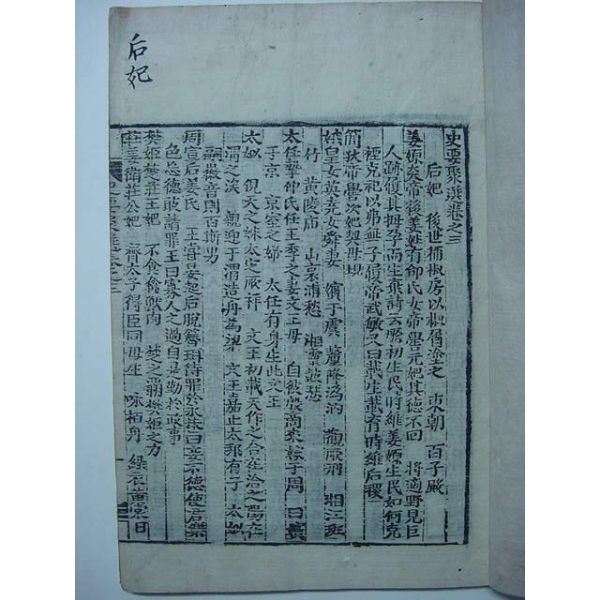 后妃
史要聚選卷之三
后妃 後世捕椒房以椒屑塗之 東朝 百子殿
姜嫄炎帝後姜姓有邰氏女帝嚳元妃其德不回 將適野見巨
人跡履其拇孕而生棄詩云厥初生民時維姜嫄生民如何克
禋克祀以弗無子履帝武敏又曰載生載育時維后稷
簡狄帝嚳次妃契母
娥皇女英堯女舜妻 嬪于虞 釐降溈汭 湘江班
竹 黃陵廟 山哀浦愁 湘靈鼓瑟
太任摯仲氏任王季之妻文王母 自彼殷商來嫁于周 曰嬪
于京 京室之婦 太任有身生此文王
太姒 俔天之妹太姒之厥祥 文王初載天作之合在洽之陽在
渭之涘 親迎于渭造舟為梁 文王嘉止大邦有子 太姒
嗣徽音則百斯男
周宣后姜氏 王嘗晏起后脫簪珥待罪於永巷曰妾不德使君樂
色忘德敢請罪王曰寡人之過自是勤於政事
樊姬楚莊王妃 不食禽獸肉 楚之霸樊姬之力
莊姜衛莊公妃 齊太子得臣同母生 咏栢舟 綠衣黃裳曰